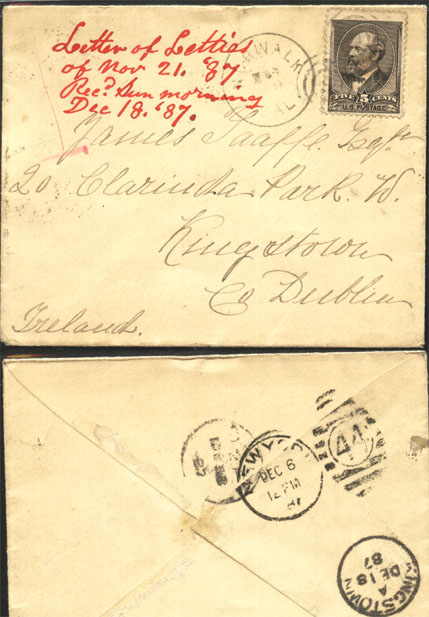 Letter of Letties
of Nov 21. '87
Rec.d Sun morning
Dec 18. '87.
WALK
FIVE 5 CENTS
U.S. POSTAGE
James Taaffe Esqr.
20 Clarinda Park. W.
Kingstown
Co Dublin
Ireland.
NEW YORK
DEC 6
12 PM
87
44
KINGSTOWN
A
DE 18
87